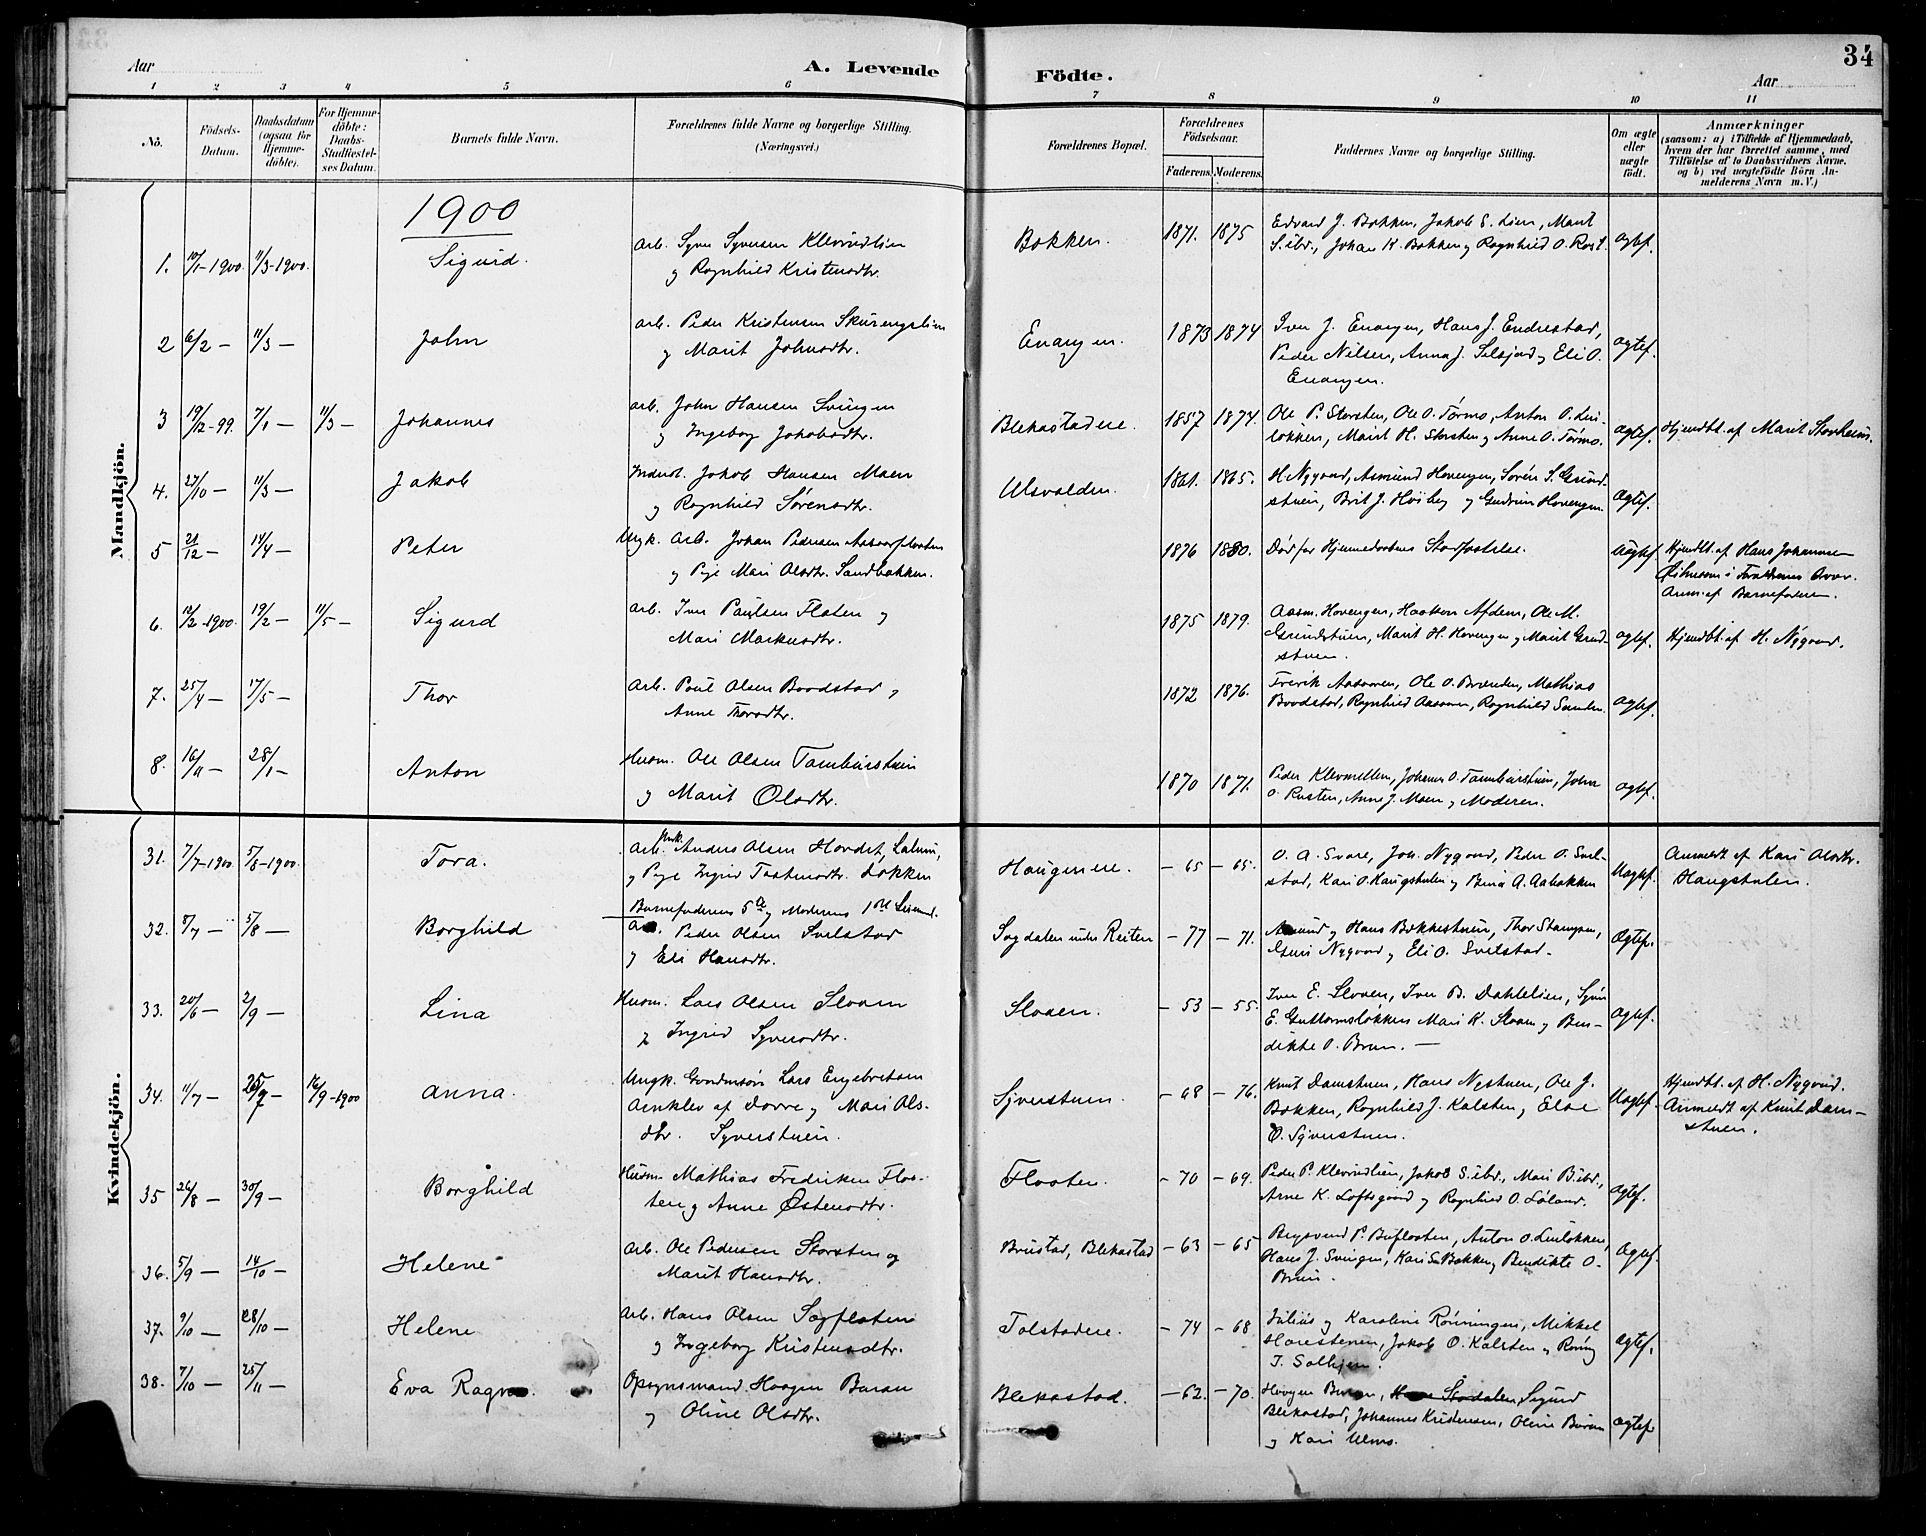 34
Aar
A. Levende
Födte.
Aar
1 2 3 4 5 6 7 8 9 10 11
No.
Födsels-
Datum.
Daabsdatum
(ogsaa for
Hjemme-
döbte).
For Hjemme-
döbte:
Daabs-
Stadfæstel-
ses Datum.
Barnets fulde Navn.
Forældrenes fulde Navne og borgerlige Stilling.
(Næringsvei.)
Forældrenes Bopæl.
Forældrenes
Födselsaar.
Faderens. Moderens.
Faddernes Navne og borgerlige Stilling.
Om ægte
eller
uægte
födt.
Anmærkninger
(saasom: a) i Tilfælde af Hjemmedaab,
hvem der har forrettet samme, med
Tilföielse af to Daabsvidners Navne.
og b) ved uægtefödte Börn An-
melderens Navn m. V.)
Mandkjön.
1900
1. 10/1-1900. 11/3-1900. Sigurd.
Arb. Syver Syversen Klevrudlien
og Ragnhild Kristensdtr.
Bakken. 1871. 1875
Edvard J. Bakken, Jakob S. Lien, Marit
S. ibd., Johan K. Bakken og Ragnhild O. Rost.
Ægtef.
2 6/2 — 11/3 — John
Arb. Peder Kristensen Skurengslien
og Marit Johnsdtr.
Enangen. 1873 1874
Iver J. Enangen, Hans J. Endrestad,
Peder Nilsen, Anna J. Selsjord og Eli O.
Enangen.
Ægtef.
3 19/12-99. 7/1 — 11/3 — Johannes
Arb. John Hansen Svingen
og Ingeborg Jakobsdtr.
Blekastadeie. 1857 1874.
Ole P. Storsten, Ole O. Tørmo, Anton O. Lin-
løkken, Marit H. Storsten og Anne O. Tørmo.
Ægtef. Hjemdbt. af Marit Storheim.
4. 27/10 — 11/3 — Jakob
Inderst. Jakob Hansen Moen
og Ragnhild Sørensdtr.
Ulsvolden. 1861. 1865.
H. Nygaard, Asmund Hovengen, Søren S. Grind-
stuen, Brit J. Høiby og Gudrun Hovengen.
Ægtef.
5 21/12 — 14/4 — Peter
Ungk. Arb. Johan Pedersen
og Pige Mari Olsdtr. Sandbakken.
1876 1880. Død før Hjemmedaabens Stadfæstelse.
Uægtef. Hjemdbt. af Hans Johannsen
i Forældrenes
Anm. af Barnefaderen.
6. 12/2-1900. 19/2 — 11/5 — Sigurd
Arb. Iver Paulsen Flaten og
Mari Markusdtr.
1875 1879.
Aasm. Hovengen, Haakon Afdem, Ole M.
Grindstuen, Marit H. Hovengen og Marit Grind-
stuen.
Ægtef. Hjemdbt. af H. Nygaard.
7. 25/4 — 17/5 — Thor
Arb. Paul Olsen Baadstad og
Anne Thorsdtr.
1872 1876.
Fredrik Aasaaren, Ole O. Brænden, Mathias
Baadstad, Ragnhild Aasaaren, Ragnhild
Ægtef.
8. 16/11 — 28/1 — Anton
Husm. Ole Olsen Tamburstuen
og Marit Olsdtr.
1870 1871.
Peder Klevmellem, Johannes O. Tamburstuen, John
O. Rusten, Anne J. Moen og Moderen.
Ægtef.
Kvindekjön.
31. 7/7-1900. 5/8-1900. Tora.
Arb. Ungk. Anders Olsen Hovdet, Lalum,
og Pige Ingrid Tostensdtr. Løkken
Barnefaderens 5te og Moderens 1ste
Haugen eie. — 65 — 65.
O. A. Svare, Joh. Nygaard, Peder O. Svel-
stad, Kari O. Haugstulen og Berit A. Aabakken
Uægtef. Anmeldt af Kari Olsdtr.
Haugstulen.
32. 8/7 — 5/8 — Borghild
Arb. Peder Olsen Svelstad
og Eli Hansdtr.
Sogdalen under Reiten — 77 — 71.
Amund og Hans Bakkestuen, Thor Stampen,
Guri Nygaard og Eli O. Svelstad.
Ægtef.
33. 20/6 — 2/9 — Lina
Husm. Lars Olsen Sloen
og Ingrid Syversdtr.
Sloen. — 53 — 55.
Iver E. Sloen, Iver B. Dahlelien,
E. Guttormsløkken Mari K. Sloen og Ben-
dikte O. Brun. —
Ægtef.
34. 11/7 — 16/9-1900 Anna.
Ungk. Gaardmsøn Lars Engebretsen
Arnklev af Dovre og Mari Ols-
dtr. Syverstuen.
Syverstuen. — 68 — 76.
Knut Damstuen, Hans Nystuen, Ole J.
Bakken, Ragnhild J. Kalsten og Else
O. Syverstuen.
Uægtef. Hjemdbt. af H. Nygaard.
Anmeldt af Knut Dam-
stuen.
35 26/8 — 30/9 — Borghild
Husm. Mathias Fredriksen Flaa-
ten og Anne Østensdtr.
Flaaten. — 70 — 69.
Peder P. Klevrudlien, Jakob S. ibd., Mari B. ibd.,
Arne K. Loftsgaard og Ragnhild O. Løland.
Ægtef.
36. 5/9 — 14/10 — Helene
Arb. Ole Pedersen Storsten og
Marit Hansdtr.
Brustad, Blekastad — 63 — 65
P. Buflaaten, Anton O. Linløkken,
Hans J. Svingen, Kari S. Bakken og Bendikte O.
Brun.
Ægtef.
37. 9/10 — 28/10 — Helene
Arb. Hans Olsen Sagflaten
og Ingeborg Kristensdtr.
Tolstadeie. — 74 — 68
Julius og Karoline Rønningen, Mikkel
Harestenen, Jakob O. Kalsten og
T. Solhjem.
Ægtef.
38. 7/10 — 25/11 — Eva
Opsynsmand Haagen Buraas
og Oline Olsdtr.
Blekastad. — 62. — 70.
Haagen Sigurd
Blekastad, Johannes Kristensen, Oline
og Kari Ulmo.
Ægtef.